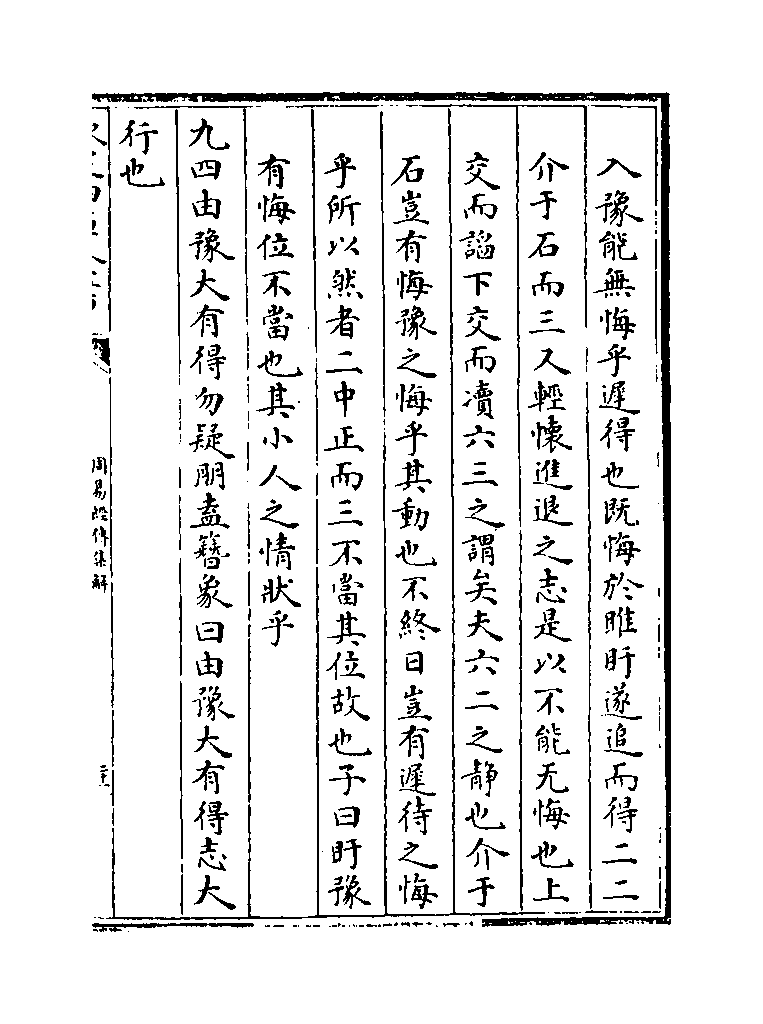 入豫能無悔乎遲得也既悔於睢盱遂追而得二二
介于石而三又輕懐進退之志是以不能无悔也上
交而謟下交而凟六三之謂矣夫六二之静也介于
石豈有悔豫之悔乎其動也不終日豈有遲待之悔
乎所以然者二中正而三不當其位故也子曰盱豫
有悔位不當也其小人之情狀乎
九四由豫大有得勿疑朋盍簪象曰由豫大有得志大
行也
周易經傳集解